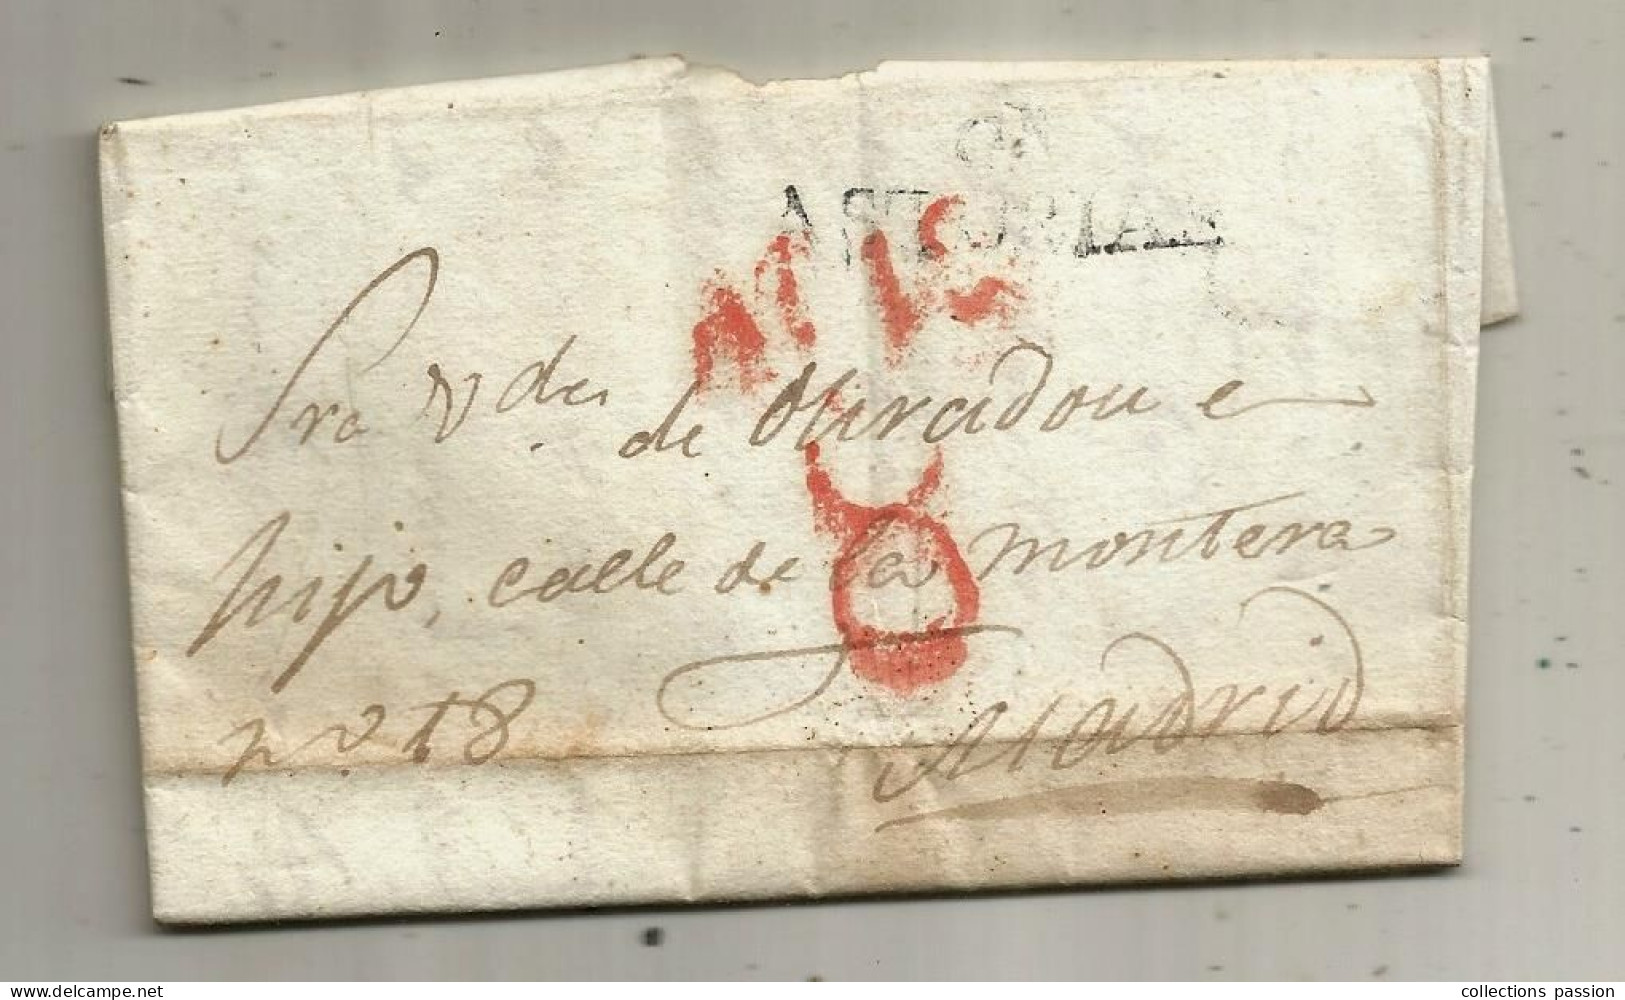 ASTURIAS
Sra V.da de Ouradou e
hijo, calle de la montera
n.o 18
Madrid
collections passion